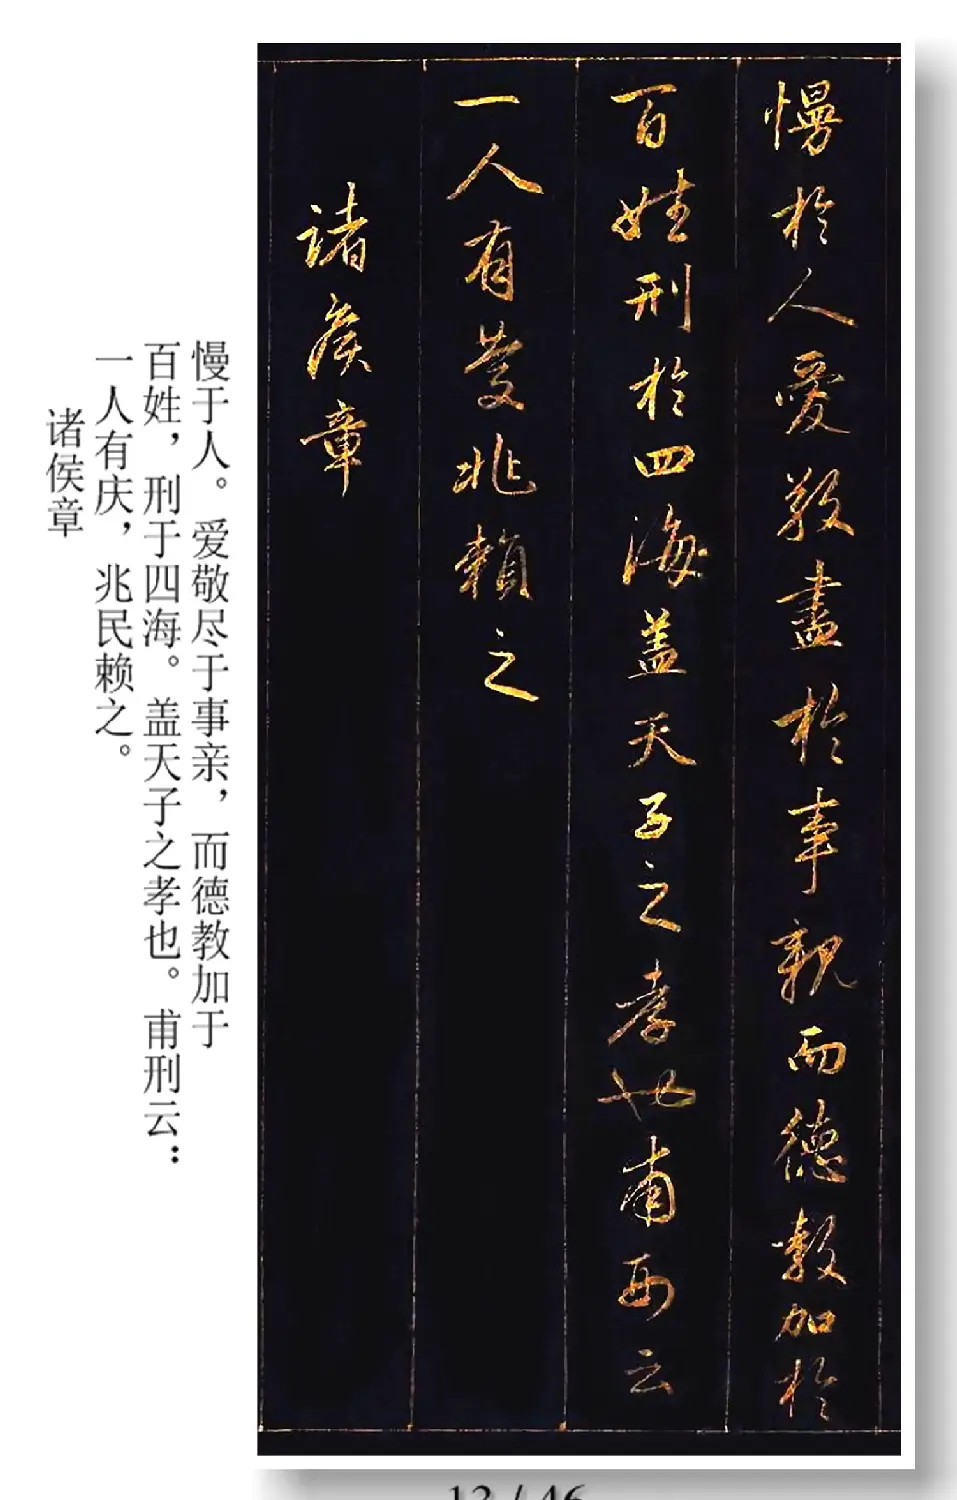 慢於人愛敬盡於事親而德教加於
百姓刑於四海盖天子之孝也甫云
一人有慶兆賴之
諸侯章
慢于人。爱敬尽于事亲，而德教加于
百姓，刑于四海。盖天子之孝也。甫刑云：
一人有庆，兆民赖之。
诸侯章
/ 46